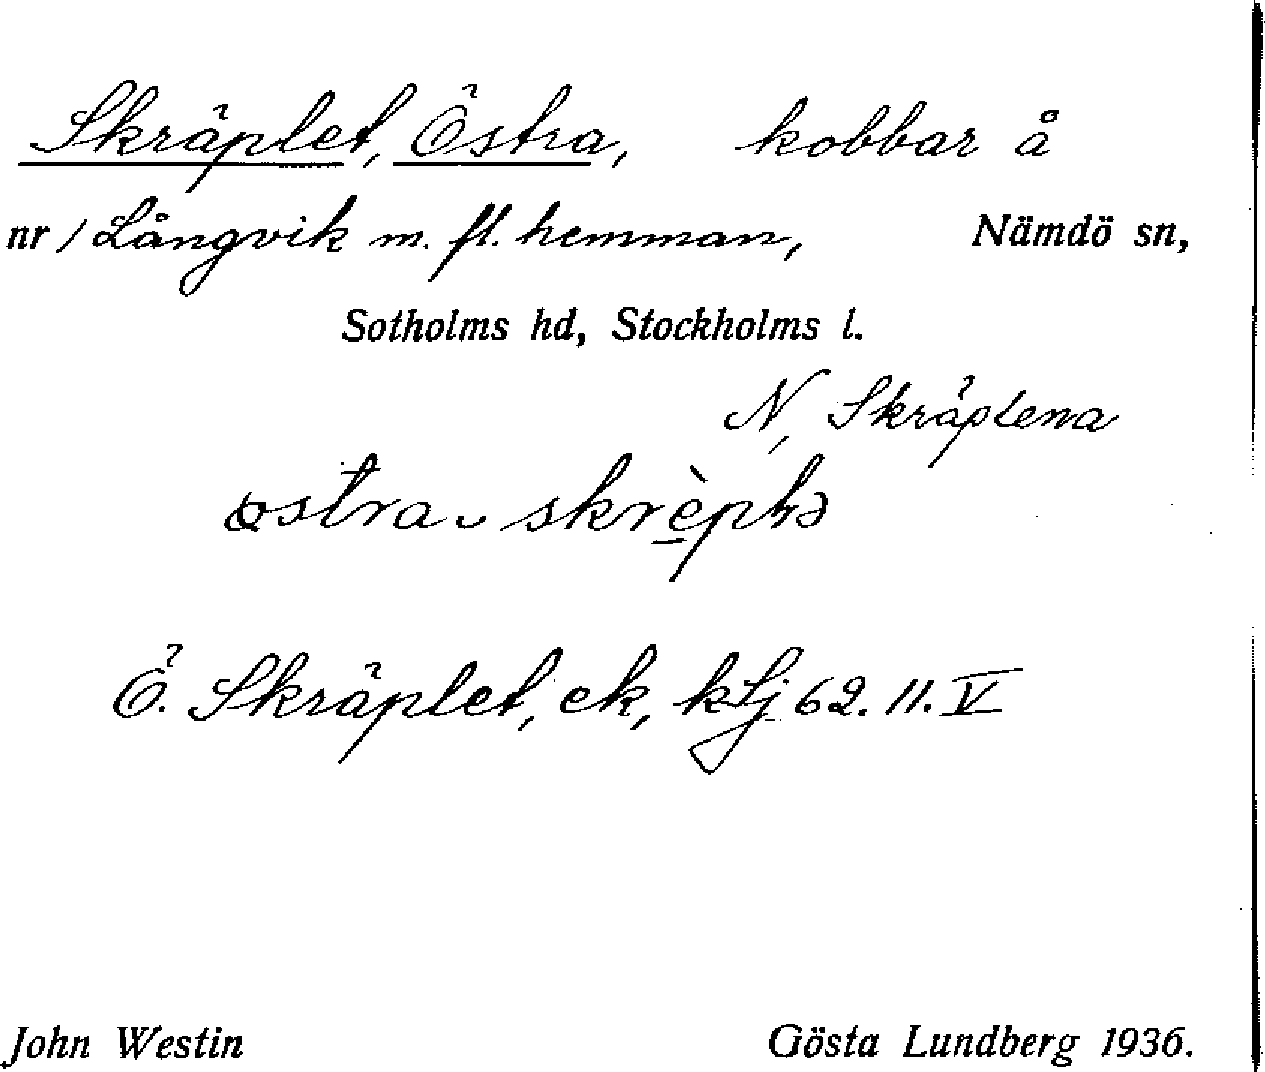 Skräplet, Östra, kobbar å
nr 1 Långvik m. fl. hemman, Nämdö sn,
Sotholms hd, Stockholms l.
N, Skräplena
östra ᴗ skrèplə
Ö. Skräplet, ek, 62. 11. V
John Westin Gösta Lundberg 1936.